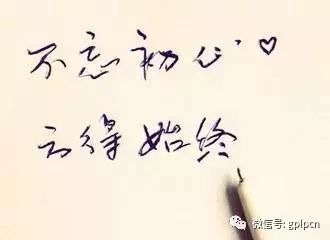 不忘初心
方得始终
微信号: gplpcn